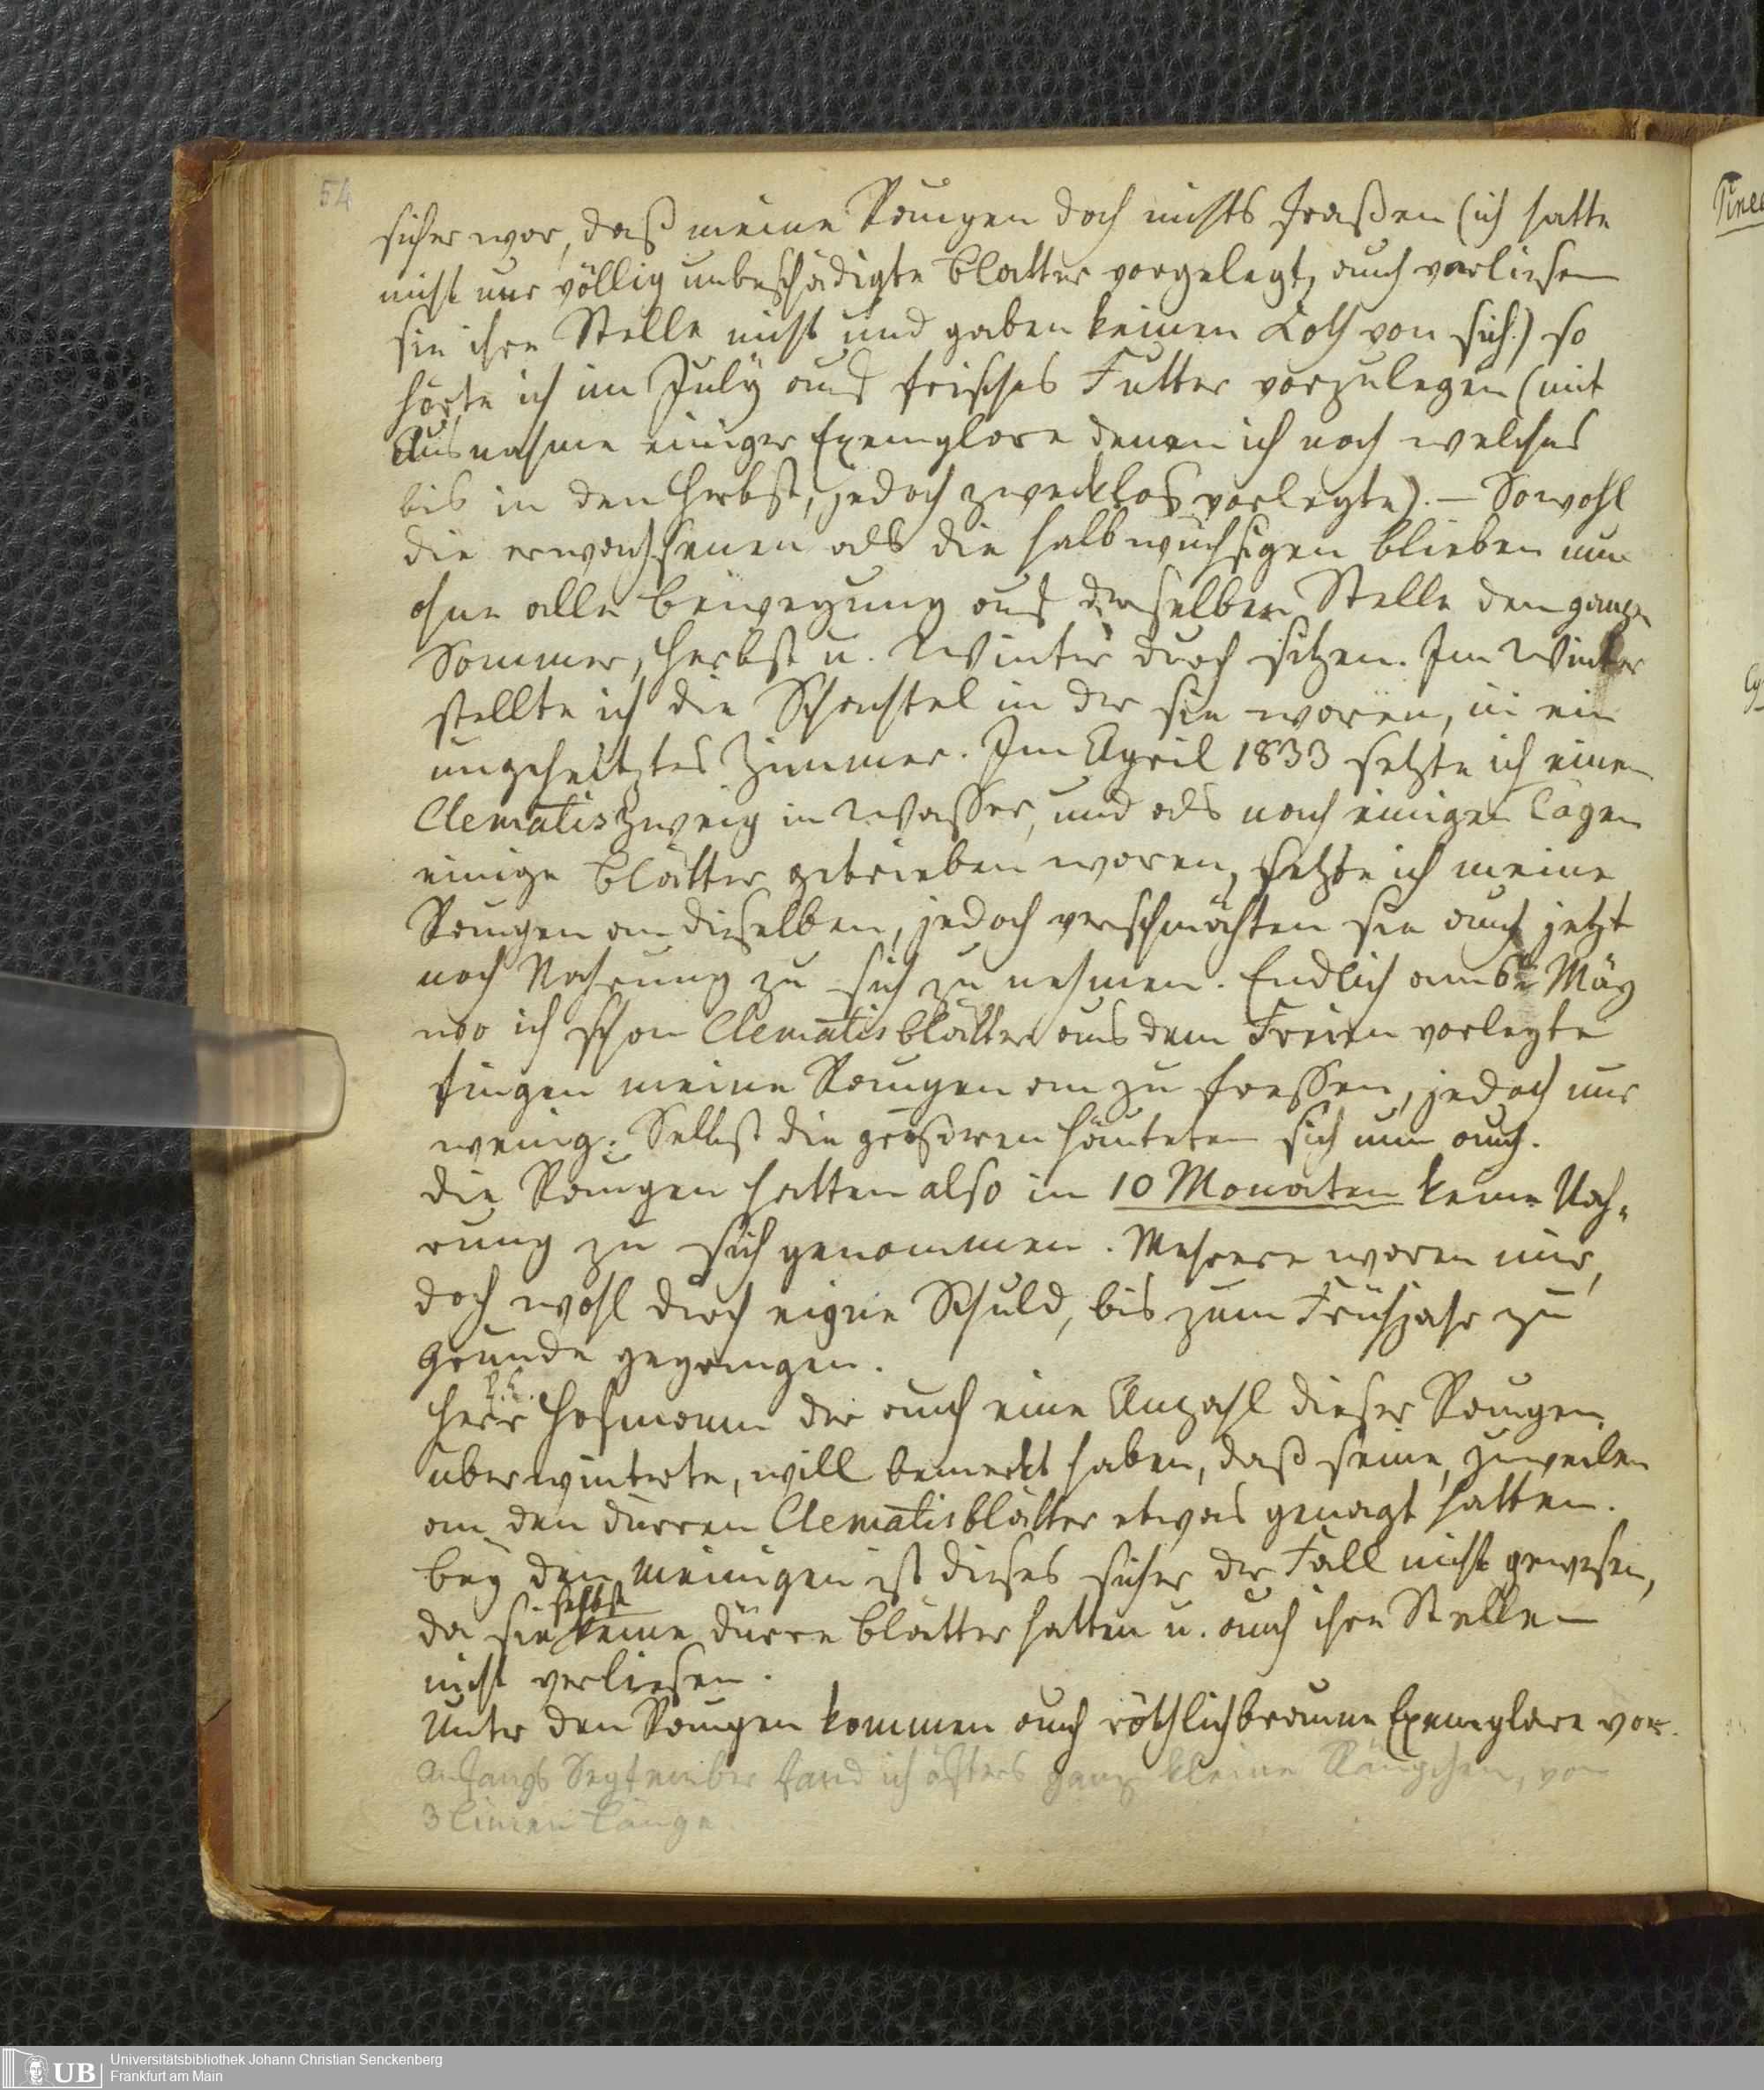 54
sicher war, daß meine Raupen doch nichts fraßen (ich hatte
nicht nur völlig unbeschädigte Blätter vorgelegt, auch verließen
sie ihre Stelle nicht und gaben keinen Koth von sich) so
hörte ich im July auf frisches Futter vorzulegen (mit
Ausnahme einiger Exemplare denen ich noch welches
bis in den Herbst, jedoch zwecklos vorlegte). – Sowohl
die erwachsenen als die halbwüchsigen blieben nun
ohne alle Bewegung auf derselben Stelle den ganzen
Sommer, Herbst u. Winter durch sitzen. Im Winter
stellte ich die Schachtel in der sie waren, in ein
ungeheitztes Zimmer. Im April 1833 setzte ich einen
Clematiszweig in Wasser, und als nach einigen Tagen
einige Blätter getrieben waren, setzte ich meine
Raupen an dieselben, jedoch verschmähten sie auch jetzt
noch Nahrung zu sich zu nehmen. Endlich am 6n May
wo ich schon Clematisblätter aus dem Freien vorlegte
fingen meine Raupen an zu fressen, jedoch nur
wenig. Selbst die größeren häuteten sich nun auch.
Die Raupen hatten also in 10 Monaten keine Nah-
rung zu sich genommen. Mehrere waren mir,
doch wohl durch eigne Schuld, bis zum Frühjahr zu
Grunde gegangen.
Herr Hofmann der auch eine Anzahl dieser Raupen
überwinterte, will bemerkt haben, daß seine, zuweilen
an den dürren Clematisblätter etwas genagt hatten.
Bey den meinigen ist dieses sicher der Fall nicht gewesen,
da sie selbst keine dürre Blätter hatten u. auch ihre Stelle
nicht verließen.
Unter den Raupen kommen auch röthlichbraune Exemplare vor.
Anfangs September fand ich öfters ganz kleine Räupchen, von
3 Linien Länge.
Universitätsbibliothek Johann Christian Senckenberg
Frankfurt am Main
UB